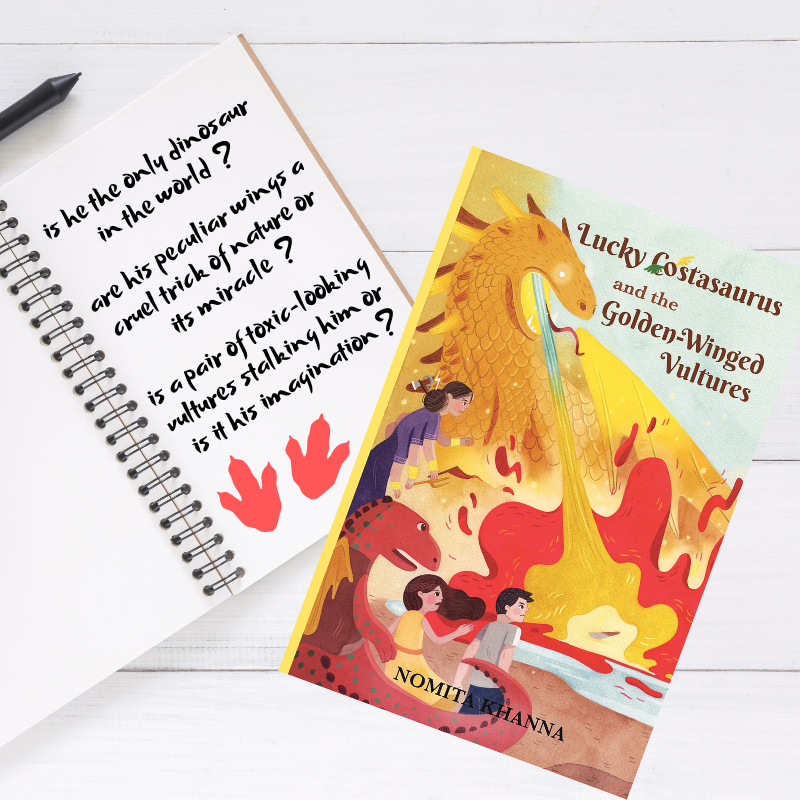 is he the only dinosaur
in the world ?
are his peculiar wings a
cruel trick of nature or
its miracle ?
is a pair of toxic-looking
vultures stalking him or
is it his imagination ?
Lucky Costasaurus
and the
Golden-Winged
Vultures
NOMITA KHANNA